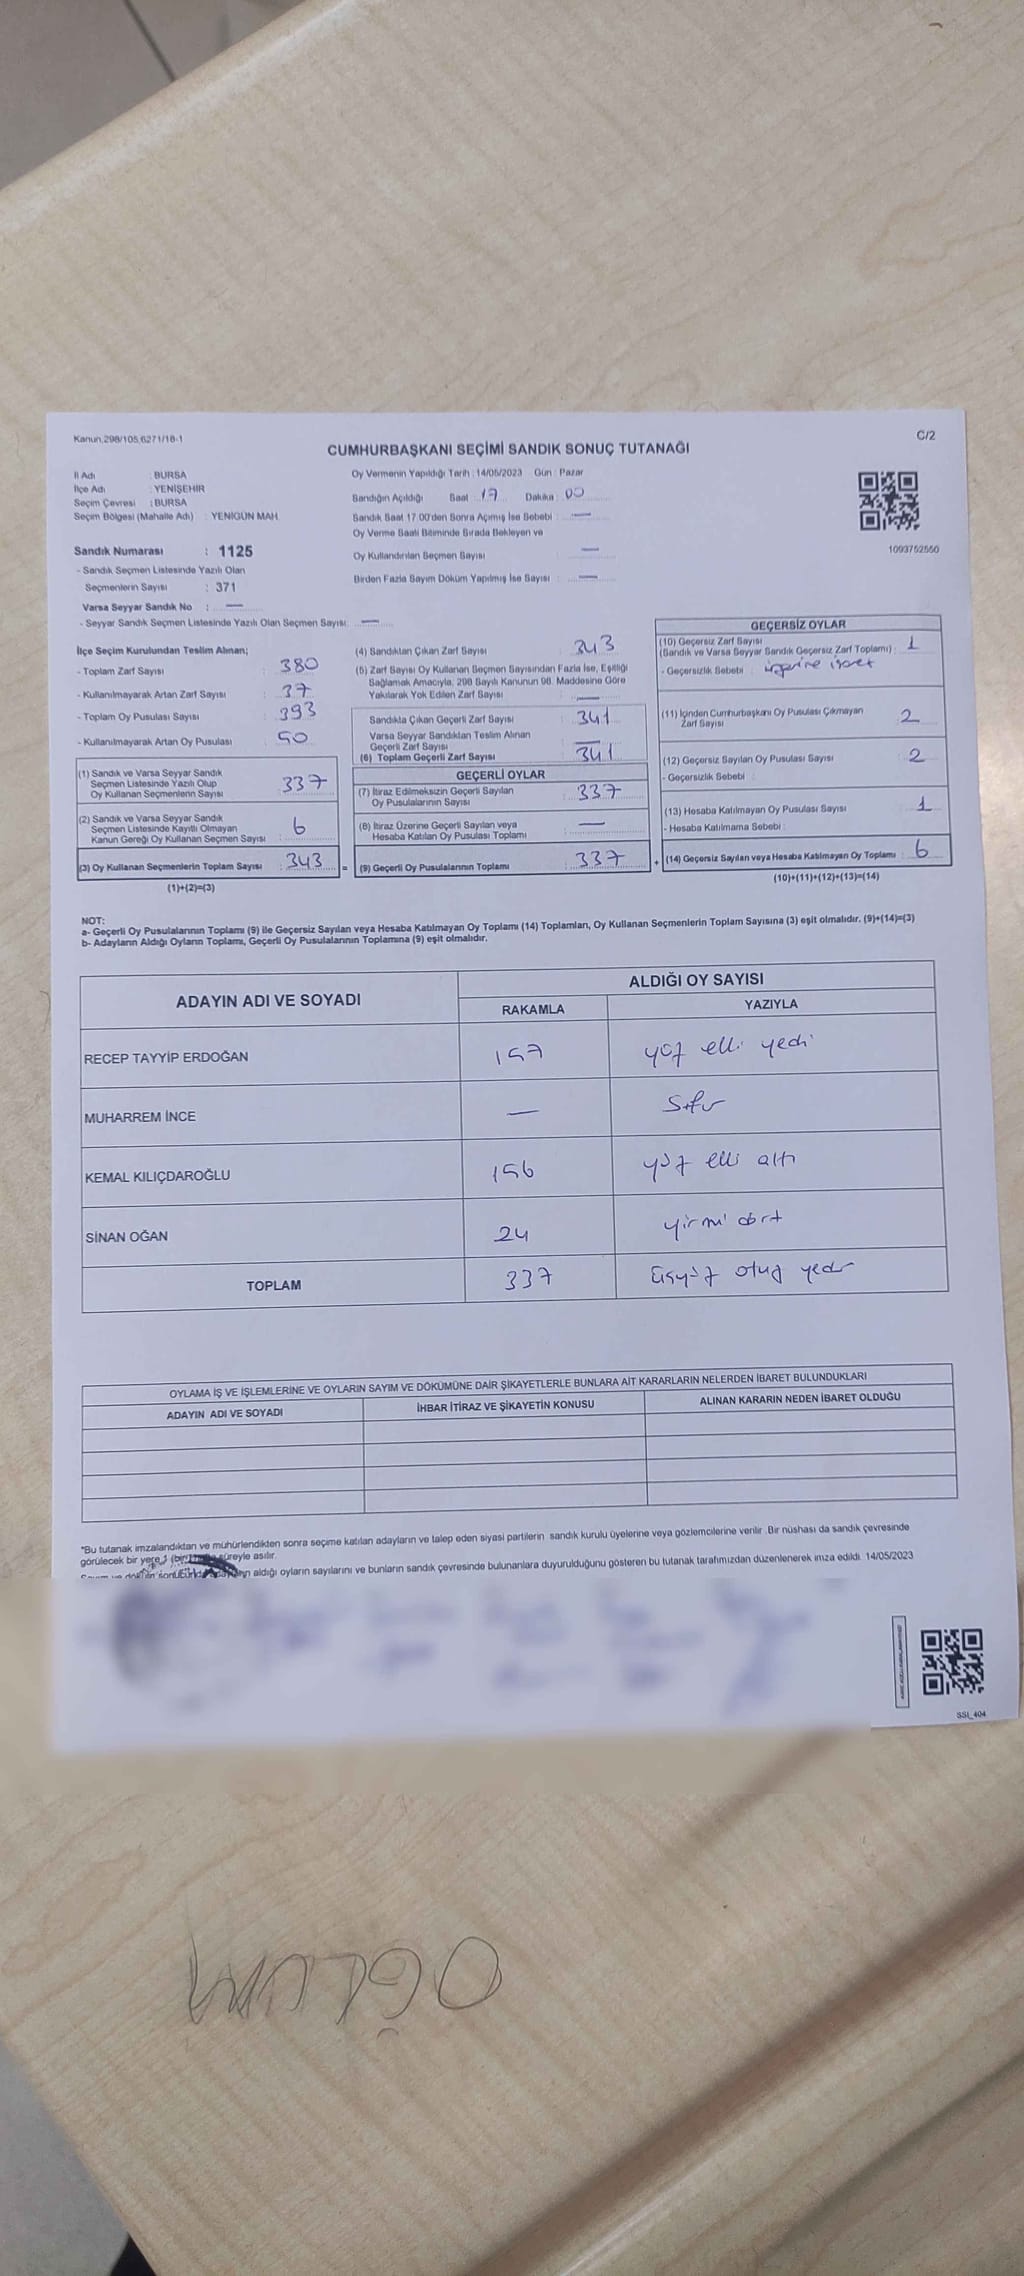 Kanun.298/105,6271/18-1
C/2
CUMHURBAŞKANI SEÇİMİ SANDIK SONUÇ TUTANAĞI
İl Adı : BURSA
İlçe Adı : YENİŞEHİR
Seçim Çevresi : BURSA
Seçim Bölgesi (Mahalle Adı) : YENİGÜN MAH.
Sandık Numarası : 1125
- Sandık Seçmen Listesinde Yazılı Olan
Seçmenlerin Sayısı : 371
Varsa Seyyar Sandık No : —
- Seyyar Sandık Seçmen Listesinde Yazılı Olan Seçmen Sayısı: —
Oy Vermenin Yapıldığı Tarih : 14/05/2023 Gün : Pazar
Sandığın Açıldığı Saat : 17 Dakika : 00
Sandık Saat 17.00'den Sonra Açılmış İse Sebebi : —
Oy Verme Saati Bitiminde Sırada Bekleyen ve
Oy Kullandırılan Seçmen Sayısı —
Birden Fazla Sayım Döküm Yapılmış İse Sayısı : —
1093752550
İlçe Seçim Kurulundan Teslim Alınan;
- Toplam Zarf Sayısı : 380
- Kullanılmayarak Artan Zarf Sayısı : 37
- Toplam Oy Pusulası Sayısı : 393
- Kullanılmayarak Artan Oy Pusulası : 50
(1) Sandık ve Varsa Seyyar Sandık
Seçmen Listesinde Yazılı Olup
Oy Kullanan Seçmenlerin Sayısı : 337
(2) Sandık ve Varsa Seyyar Sandık
Seçmen Listesinde Kayıtlı Olmayan
Kanun Gereği Oy Kullanan Seçmen Sayısı : 6
(3) Oy Kullanan Seçmenlerin Toplam Sayısı : 343 =
(1)+(2)=(3)
(4) Sandıktan Çıkan Zarf Sayısı : 343
(5) Zarf Sayısı Oy Kullanan Seçmen Sayısından Fazla İse, Eşitliği
Sağlamak Amacıyla, 298 Sayılı Kanunun 98. Maddesine Göre
Yakılarak Yok Edilen Zarf Sayısı : —
Sandıkta Çıkan Geçerli Zarf Sayısı : 341
Varsa Seyyar Sandıktan Teslim Alınan
Geçerli Zarf Sayısı : —
(6) Toplam Geçerli Zarf Sayısı : 341
GEÇERLİ OYLAR
(7) İtiraz Edilmeksizin Geçerli Sayılan
Oy Pusulalarının Sayısı : 337
(8) İtiraz Üzerine Geçerli Sayılan veya
Hesaba Katılan Oy Pusulası Toplamı : —
(9) Geçerli Oy Pusulalarının Toplamı : 337 +
GEÇERSİZ OYLAR
(10) Geçersiz Zarf Sayısı
(Sandık ve Varsa Seyyar Sandık Geçersiz Zarf Toplamı) : 1
- Geçersizlik Sebebi : üzerine işaret
(11) İçinden Cumhurbaşkanı Oy Pusulası Çıkmayan
Zarf Sayısı 2
(12) Geçersiz Sayılan Oy Pusulası Sayısı 2
- Geçersizlik Sebebi :
(13) Hesaba Katılmayan Oy Pusulası Sayısı 1
- Hesaba Katılmama Sebebi :
(14) Geçersiz Sayılan veya Hesaba Katılmayan Oy Toplamı : 6
(10)+(11)+(12)+(13)=(14)
NOT:
a- Geçerli Oy Pusulalarının Toplamı (9) ile Geçersiz Sayılan veya Hesaba Katılmayan Oy Toplamı (14) Toplamları, Oy Kullanan Seçmenlerin Toplam Sayısına (3) eşit olmalıdır. (9)+(14)=(3)
b- Adayların Aldığı Oyların Toplamı, Geçerli Oy Pusulalarının Toplamına (9) eşit olmalıdır.
ADAYIN ADI VE SOYADI
ALDIĞI OY SAYISI
RAKAMLA YAZIYLA
RECEP TAYYİP ERDOĞAN 157 yüz elli yedi
MUHARREM İNCE — Sıfır
KEMAL KILIÇDAROĞLU 156 yüz elli altı
SİNAN OĞAN 24 yirmi dört
TOPLAM 337 üçyüz otuz yedi
OYLAMA İŞ VE İŞLEMLERİNE VE OYLARIN SAYIM VE DÖKÜMÜNE DAİR ŞİKAYETLERLE BUNLARA AİT KARARLARIN NELERDEN İBARET BULUNDUKLARI
ADAYIN ADI VE SOYADI İHBAR İTİRAZ VE ŞİKAYETİN KONUSU ALINAN KARARIN NEDEN İBARET OLDUĞU
*Bu tutanak imzalandıktan ve mühürlendikten sonra seçime katılan adayların ve talep eden siyasi partilerin sandık kurulu üyelerine veya gözlemcilerine verilir. Bir nüshası da sandık çevresinde
görülecek bir yere 1 (bir) süreyle asılır.
aldığı oyların sayılarını ve bunların sandık çevresinde bulunanlara duyurulduğunu gösteren bu tutanak tarafımızdan düzenlenerek imza edildi. 14/05/2023
SSI_404
OĞLUM